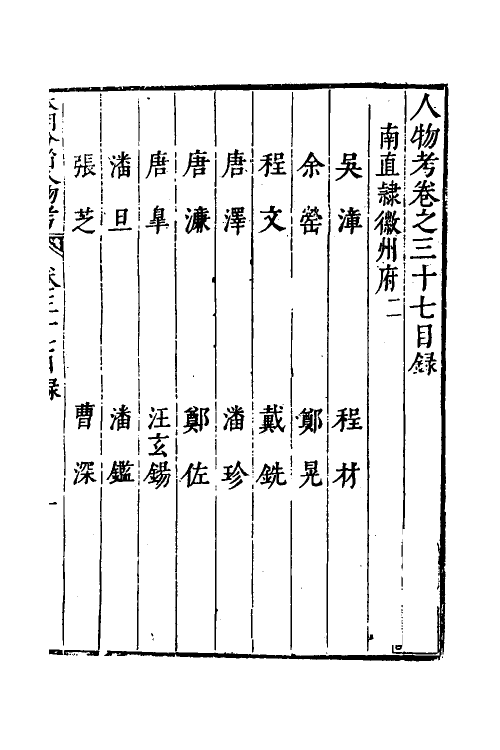 人物考卷之三十七目録
南直隸徽州府二
吳漳 程材
余罃 鄭晃
程文 戴銑
唐澤 潘珍
唐濂 鄭佐
唐皐 汪玄錫
潘旦 潘鑑
張芝 曹深
人物考 卷三十七目録 一